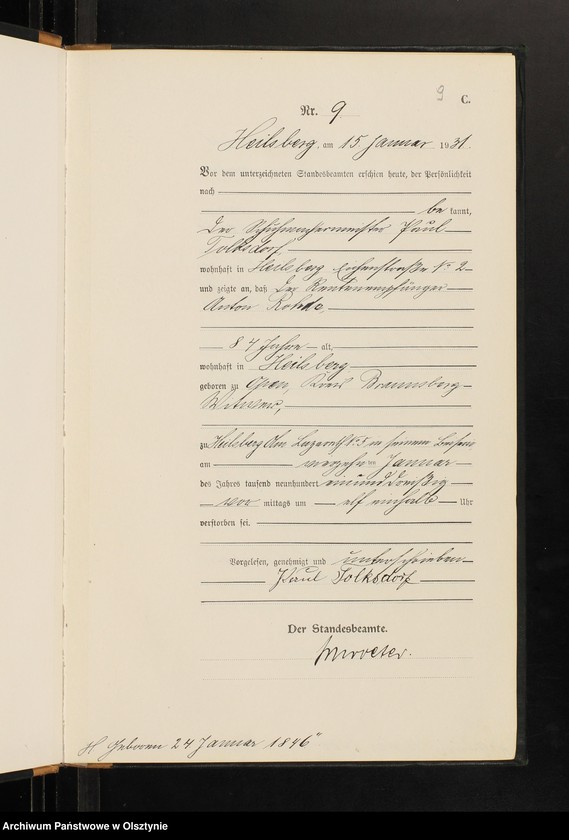 9
C.
Nr. 9
Heilsberg, am 15. Januar 1931
Vor dem unterzeichneten Standesbeamten erschien heute, der Persönlichkeit
nach
be kannt,
der Schuhmachermeister Paul
Tolksdorf
wohnhaft in Heilsberg Eichenstraße No 2
und zeigte an, daß der Rentenempfänger
Anton
84 Jahre alt,
wohnhaft in Heilsberg
geboren zu Open, Kreis Braunsberg
Witwer,
zu Heilsberg Am Lazarett No 5 in seinem Beisein
am vierzehnten Januar
des Jahres tausend neunhundert einunddreißig
vor mittags um elf einhalb Uhr
verstorben sei.
Vorgelesen, genehmigt und unterschrieben
Paul Tolksdorf
Der Standesbeamte.
Geboren 24 Januar 1846"
Archiwum Państwowe w Olsztynie